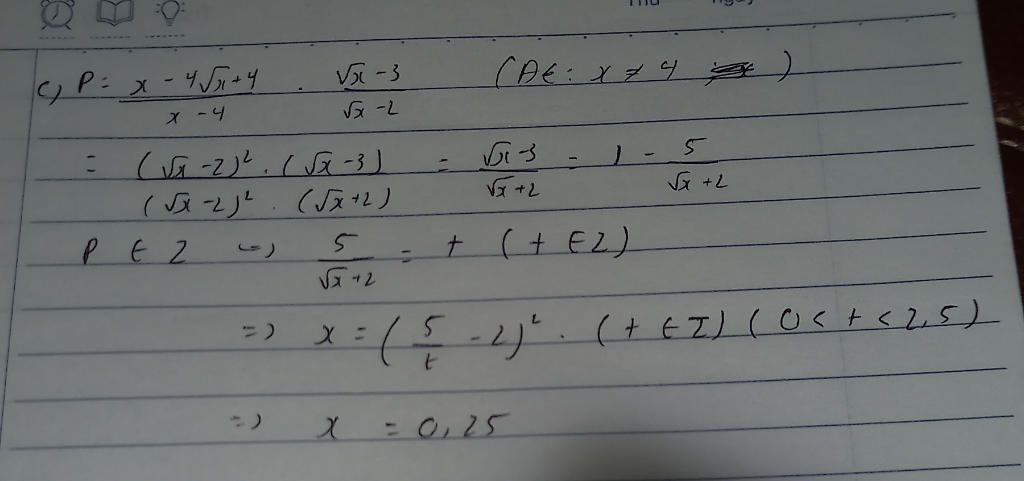 c) P = x - 4√x + 4 / x - 4 . √x - 3 / √x - 2 (ĐK: x ≠ 4)
= (√x - 2)² . (√x - 3) / (√x - 2)² . (√x + 2) = √x - 3 / √x + 2 = 1 - 5 / √x + 2
P ∈ Z => 5 / √x + 2 = t (t ∈ Z)
=> x = (5 / t - 2)² . (t ∈ Z) (0 < t < 2,5)
=> x = 0,25